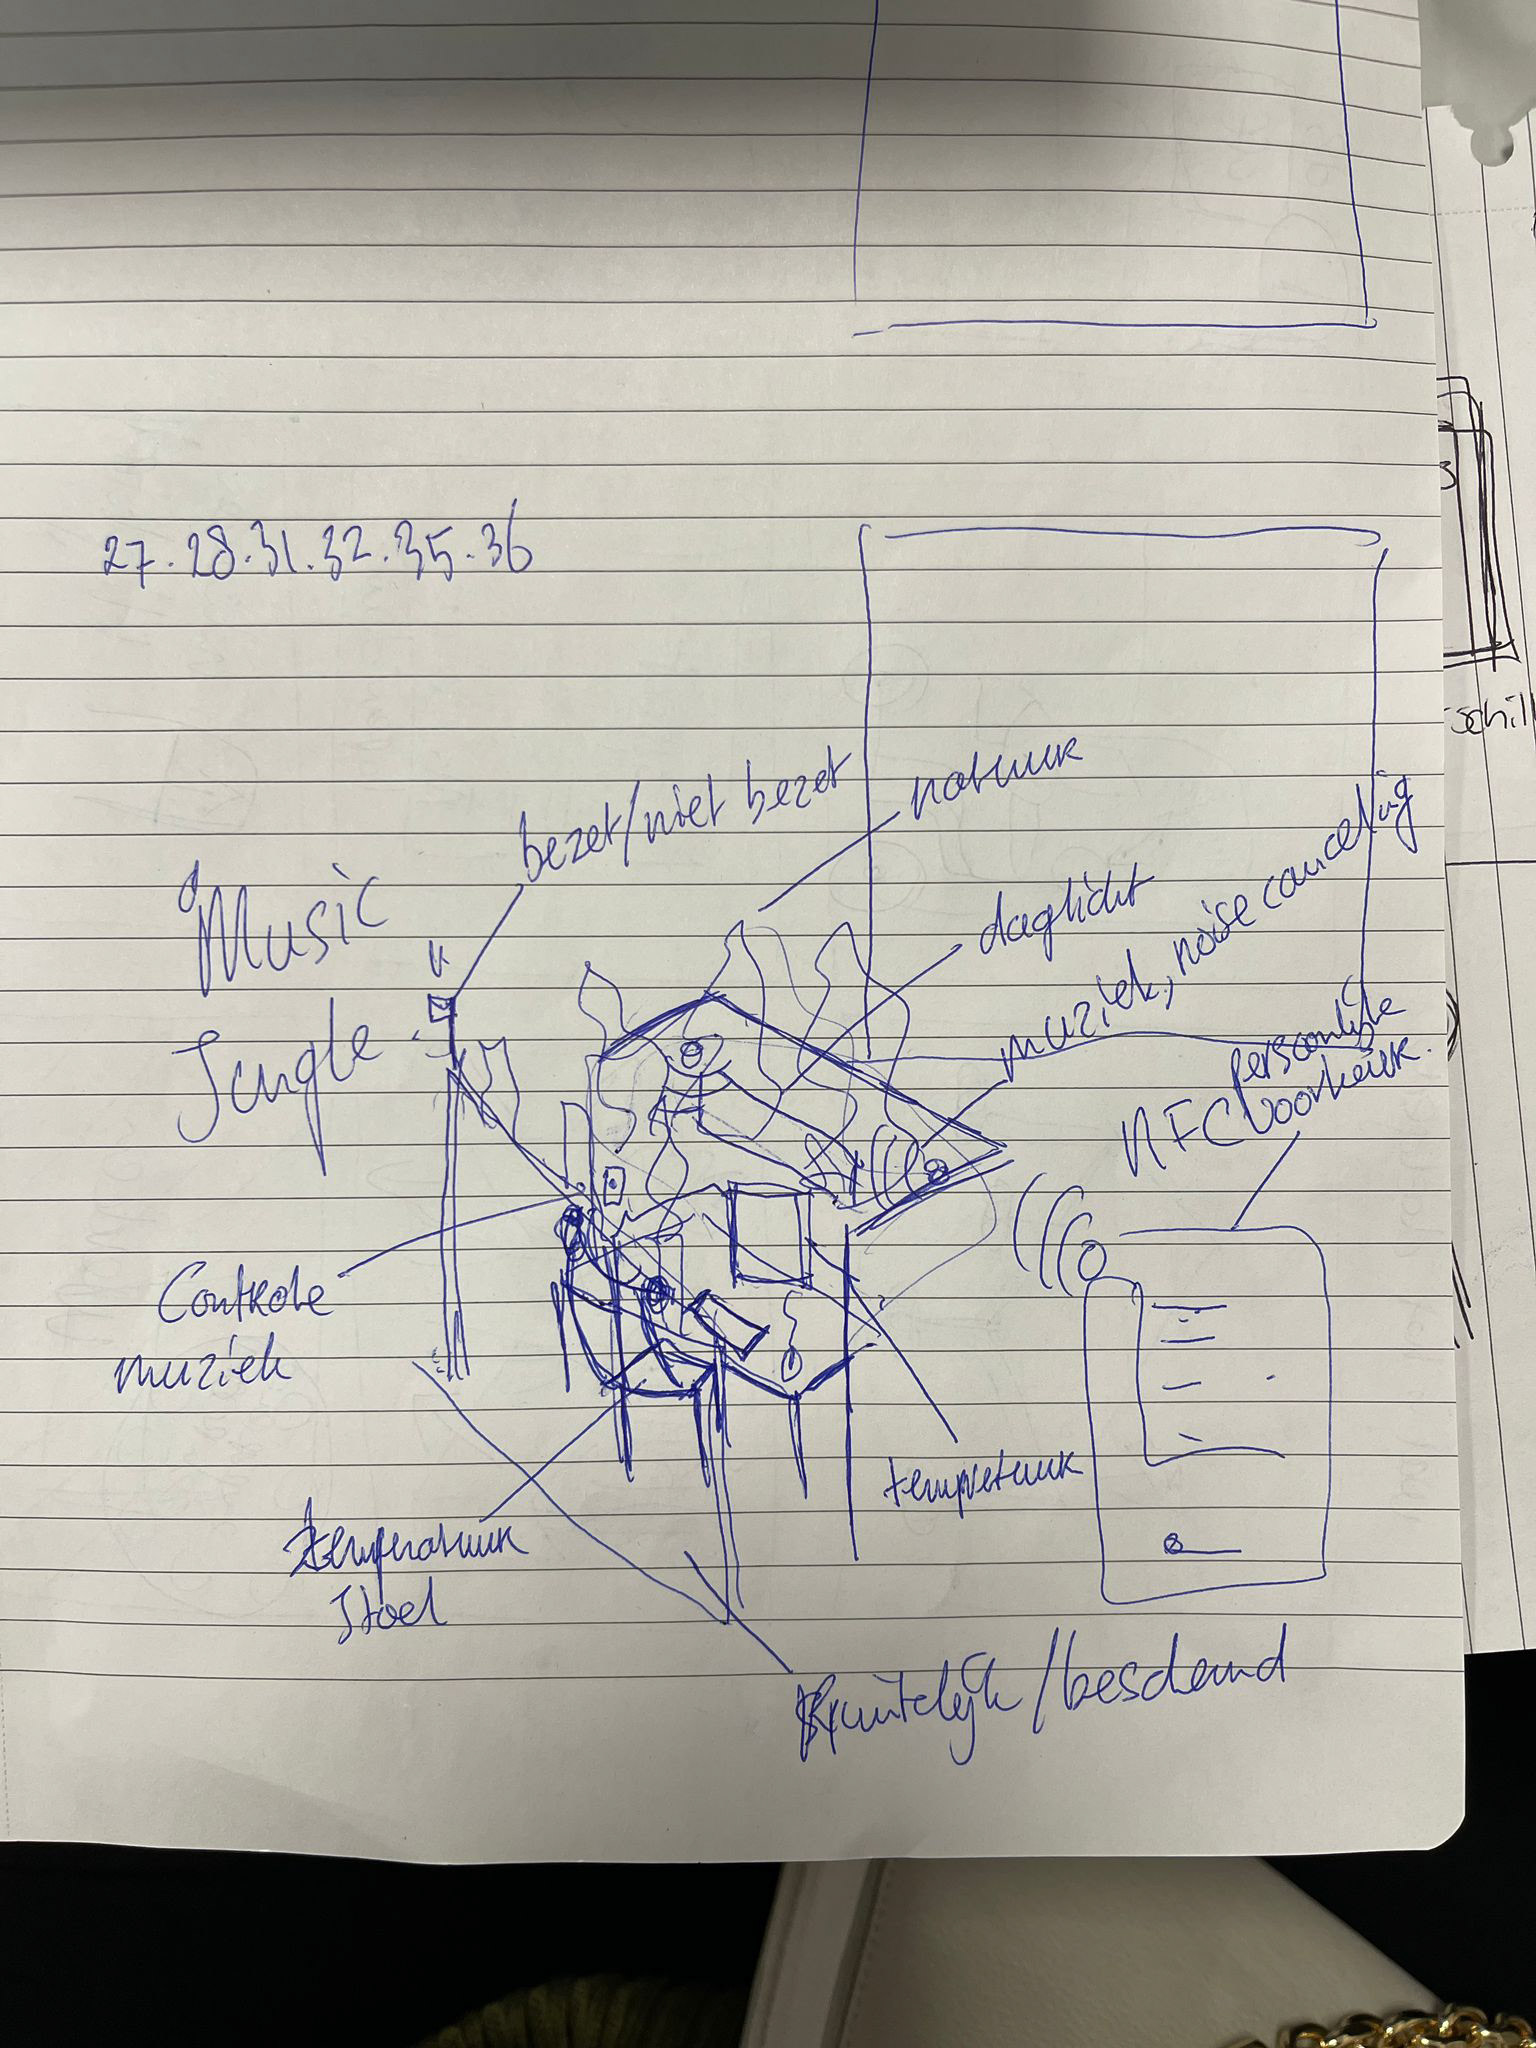 27.28.31.32.35.36
Music
Jungle
bezet/niet bezet
natuur
daglicht
muziek, noise canceling
persoonlijke
NFC voorkeur.
Controle
muziek
temperatuur
Stoel
schil